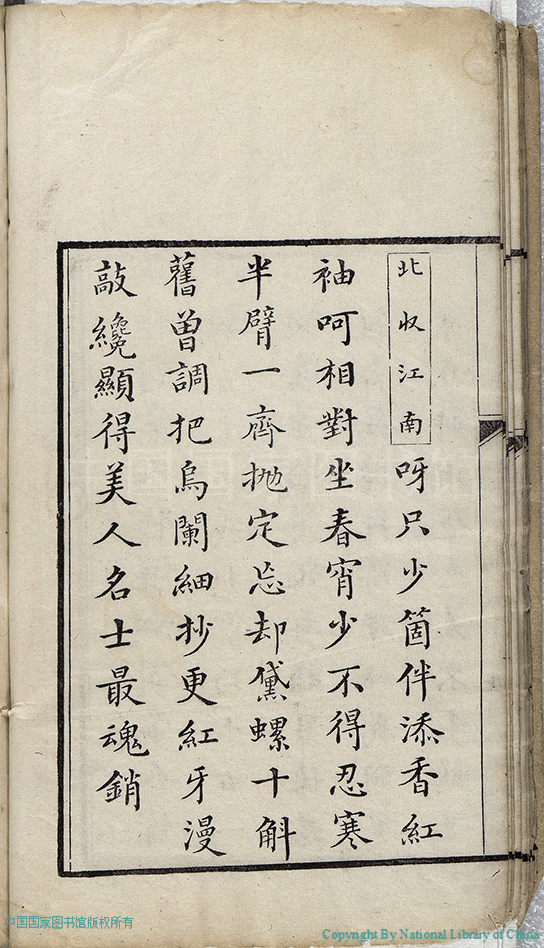 北收江南呀只少箇伴添香紅
袖呵相對坐春宵少不得忍寒
半臂一齊抛定忘却黛螺十斛
舊曾調把烏闌細抄更紅牙漫
敲纔顯得美人名士最魂銷
中国国家图书馆版权所有
Copyright By National Library of China